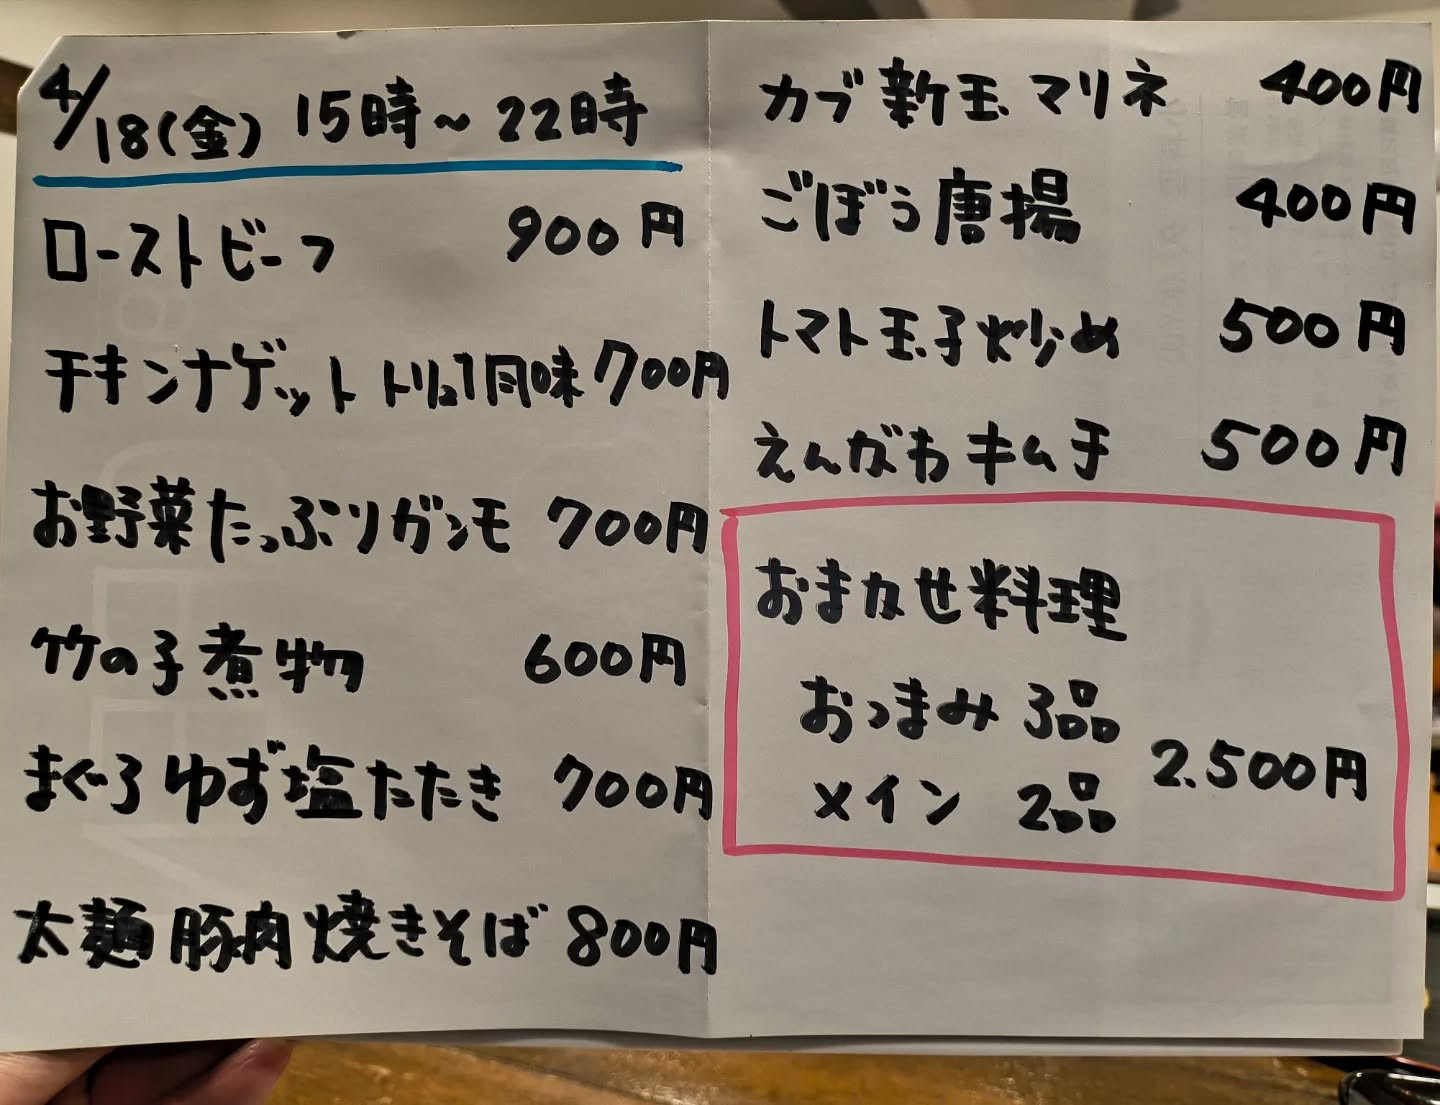 4/18(金) 15時~22時
ローストビーフ 900円
チキンナゲット トリュフ風味 700円
お野菜たっぷりガンモ 700円
竹の子煮物 600円
まぐろゆず塩たたき 700円
太麺豚肉焼きそば 800円
カブ新玉マリネ 400円
ごぼう唐揚 400円
トマト玉子炒め 500円
えんがわキムチ 500円
おまかせ料理
おつまみ 3品
メイン 2品 2.500円